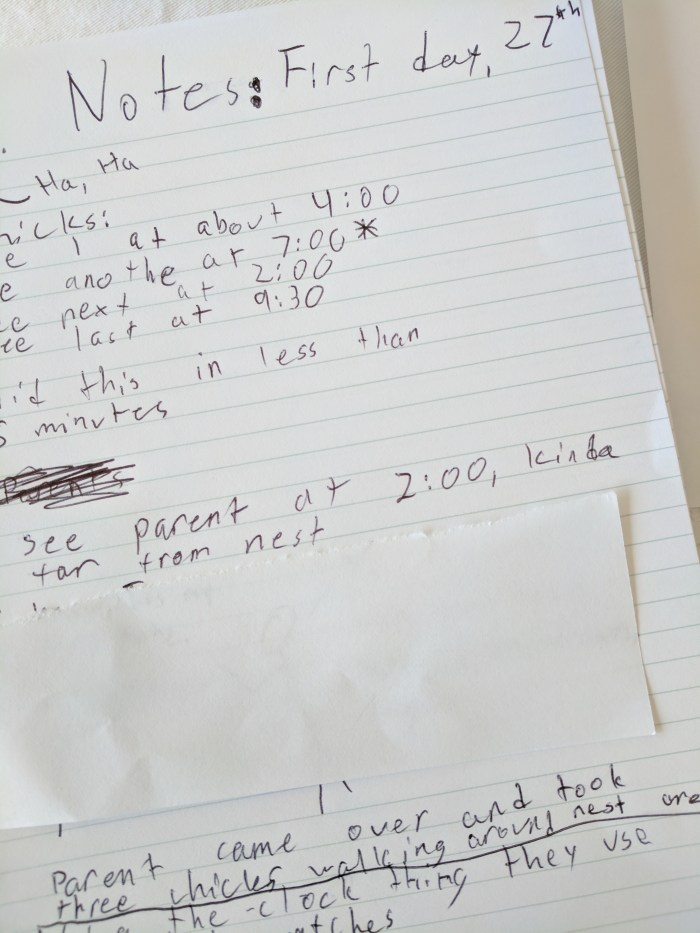 Notes: First day, 27th
Ha, Ha
hicks:
e 1 at about 4:00
e anothe at 7:00*
ee next at 2:00
ee last at 9:30
id this in less than
minutes
see parent at 2:00, kinda
far from nest
Parent came over and took
three chicks walking around nest are
the -clock thing they use
atches